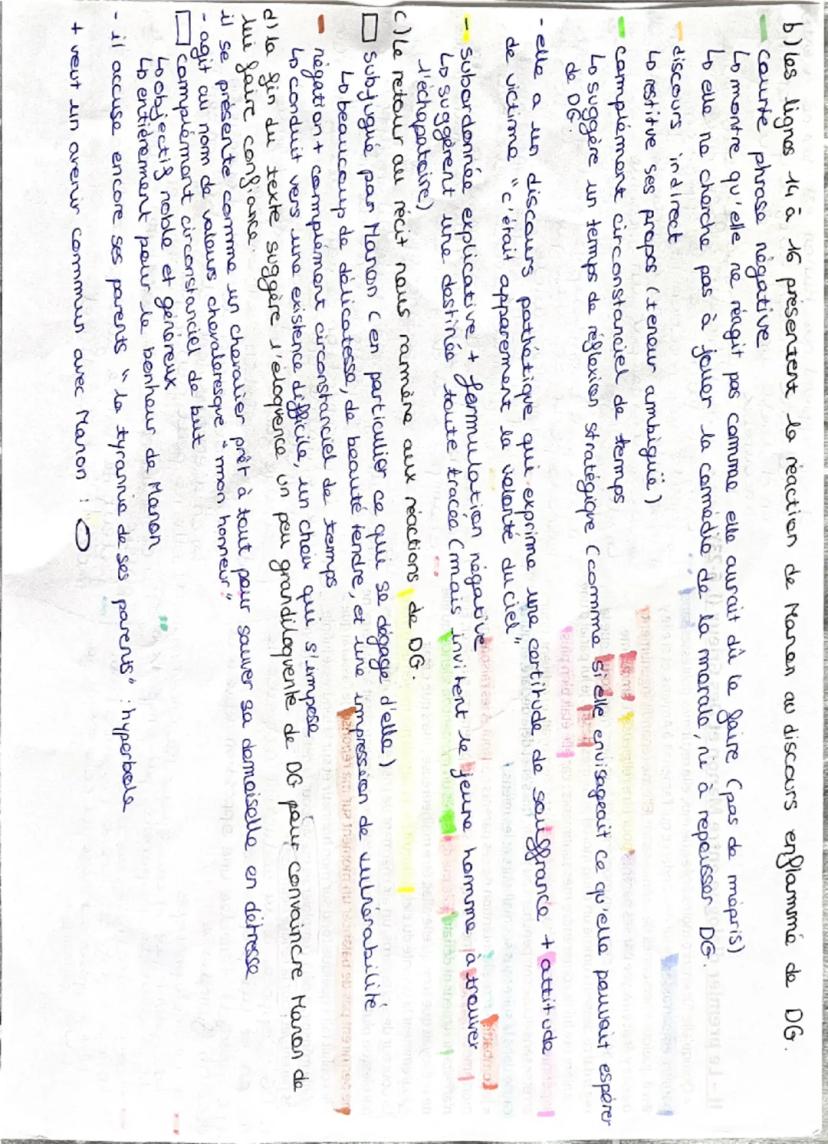 b) les lignes 14 à 16 présentent la réaction de Manon au discours enflammé de DG.
- courte phrase négative
↳ montre qu'elle ne réagit pas comme elle aurait dû le faire (pas de mépris)
↳ elle ne cherche pas à jouer la comédie de la morale, ni à repousser DG.
- discours indirect
↳ restitue ses propos (teneur ambiguë)
- complément circonstanciel de temps
↳ suggère un temps de réflexion stratégique (comme si elle envisageait ce qu'elle pouvait espérer
de DG.
- elle a un discours pathétique qui exprime une certitude de souffrance + attitude
de victime "c'était apparement la volonté du ciel"
- subordonnée explicative + formulation négative
↳ suggèrent une destinée toute tracée (mais invitent le jeune homme à trouver
l'échapatoire)
c) Le retour au récit nous ramène aux réactions de DG.
□ subjugué par Manon (en particulier ce qui se dégage d'elle)
↳ beaucoup de délicatesse, de beauté tendre, et une impression de vulnérabilité
- négation + complément circonstanciel de temps
↳ conduit vers une existence difficile, un choix qui s'impose
d) la fin du texte suggère l'éloquence un peu grandiloquente de DG pour convaincre Manon de
lui faire confiance.
il se présente comme un chevalier prêt à tout pour sauver sa demoiselle en détresse
- agit au nom de valeurs chevaleresque "mon honneur"
□ complément circonstanciel de but
↳ objectif noble et généreux
↳ entièrement pour le bonheur de Manon
- il accuse encore ses parents "la tyrannie de ses parents" : hyperbole
+ veut un avenir commun avec Manon :